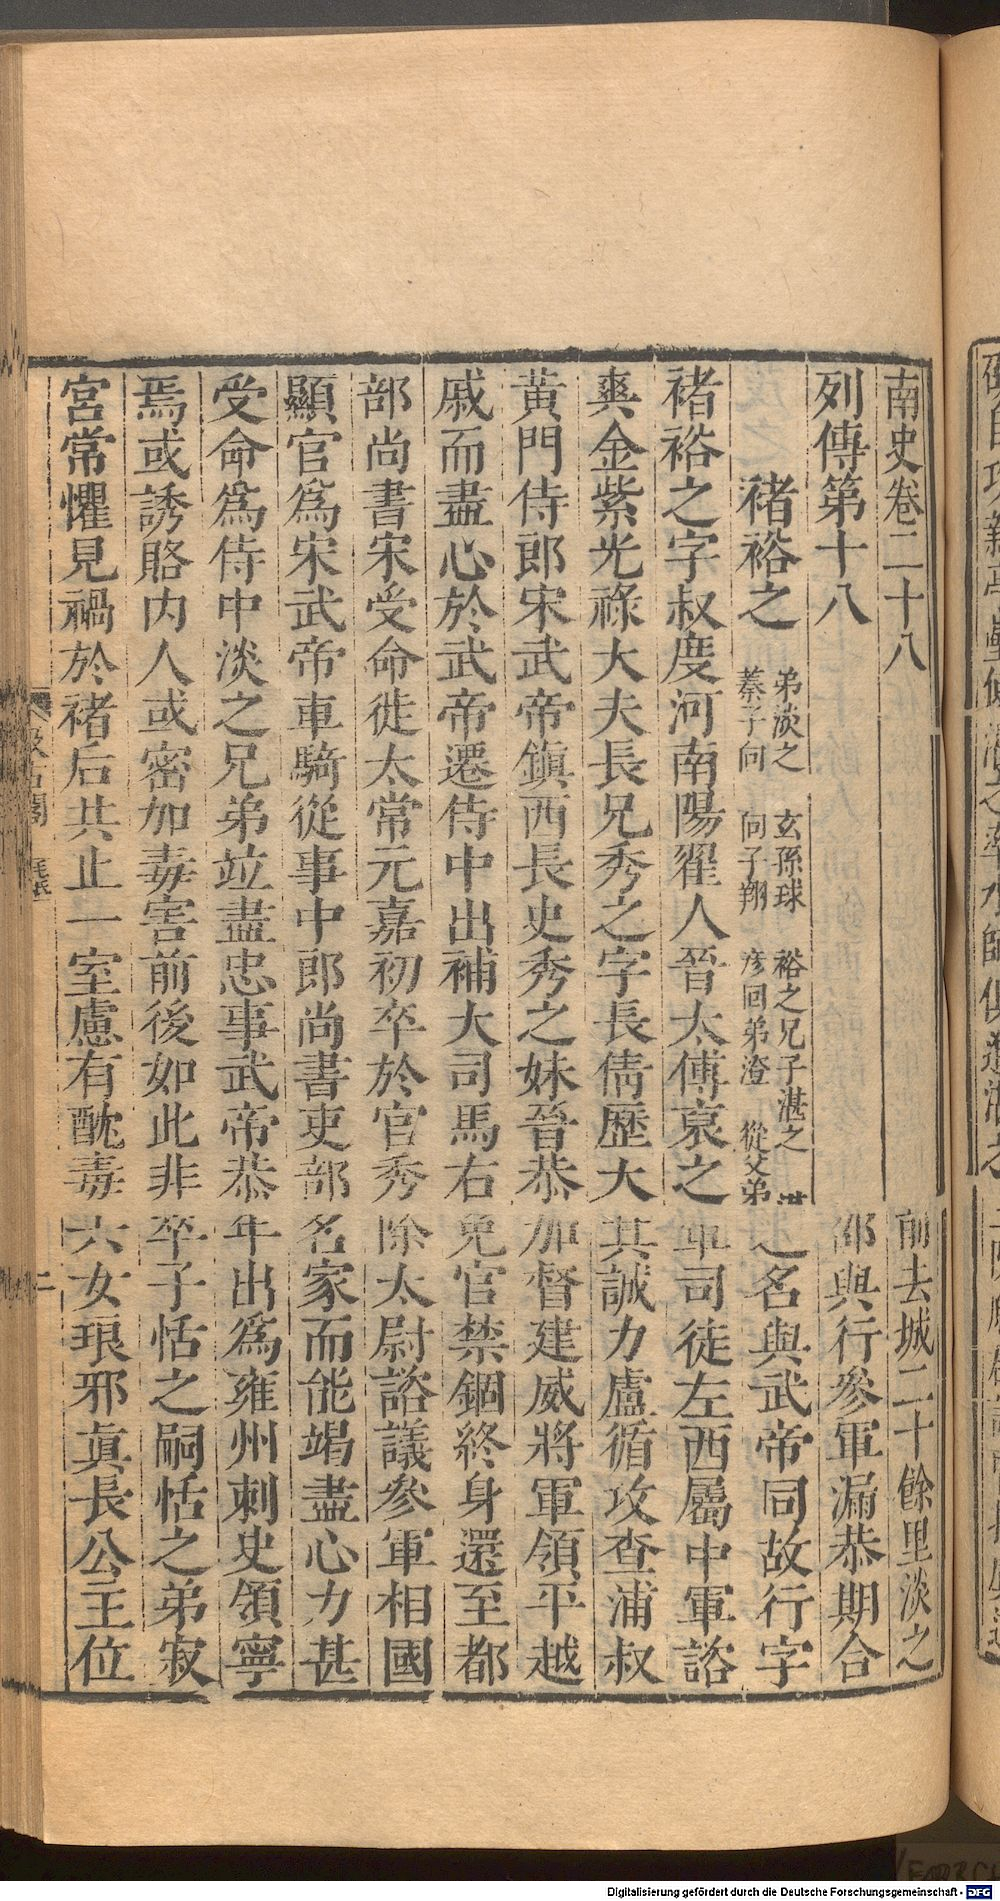 南史卷二十八前去城二十餘里淡之
列傳第十八邵與行參軍漏恭期合
褚裕之 弟淡之 玄孫球 裕之兄子湛之
蓁子向 向子翔 彦回弟澄 從父弟
之名與武帝同故行字
褚裕之字叔度河南陽翟人晉太傅裒之軍司徒左西屬中軍諮
爽金紫光祿大夫長兄秀之字長倩歷大其誠力盧循攻查浦叔
黃門侍郎宋武帝鎮西長史秀之妹晉恭加督建威將軍領平越
戚而盡心於武帝遷侍中出補大司馬右免官禁錮終身還至都
部尚書宋受命徙太常元嘉初卒於官秀除太尉諮議參軍相國
顯官爲宋武帝車騎從事中郎尚書吏部名家而能竭盡心力甚
受命爲侍中淡之兄弟竝盡忠事武帝恭年出爲雍州刺史領寧
焉或誘賂內人或密加毒害前後如此非卒子恬之嗣恬之弟寂
宮常懼見禍於褚后共止一室慮有酖毒六女琅邪眞長公主位
汲古閣 毛氏 二
Digitalisierung gefördert durch die Deutsche Forschungsgemeinschaft - DFG